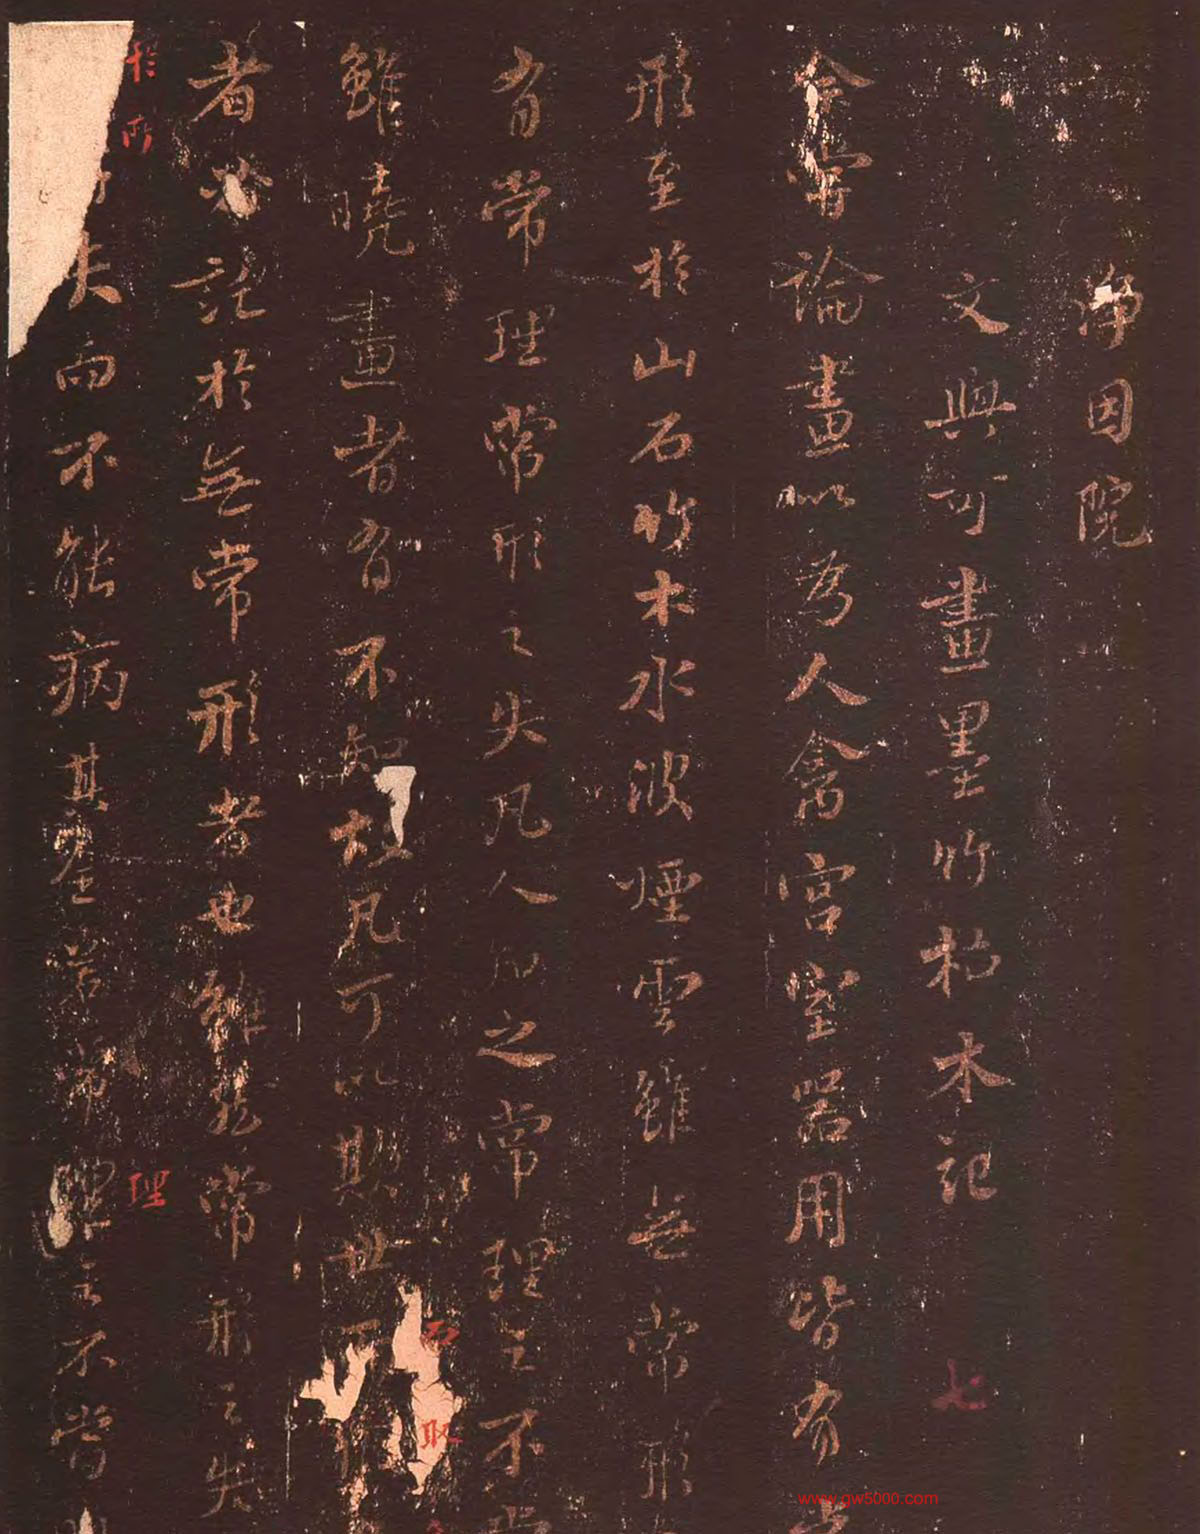 淨因院
文與可畫墨竹枯木記 七
余嘗論畫以為人禽宮室器用皆有常
形至於山石竹木水波煙雲雖無常形
有常理常形之失凡人知之常理之不當
雖曉畫者有不知故凡可以欺世
而取
者必託於無常形者也雖然常形之失
於所
理
失而不能病其全若常理之不當
www.gw5000.com